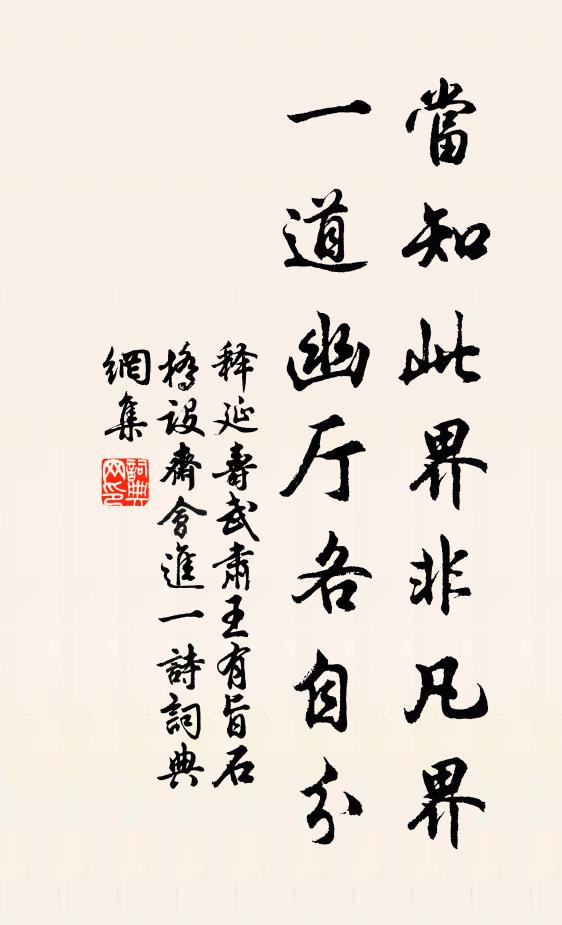 當知此界非凡界
一道幽厅各自分
释延壽武肅王有旨石
橋設齋會進一詩詞典
網集
詞典網印